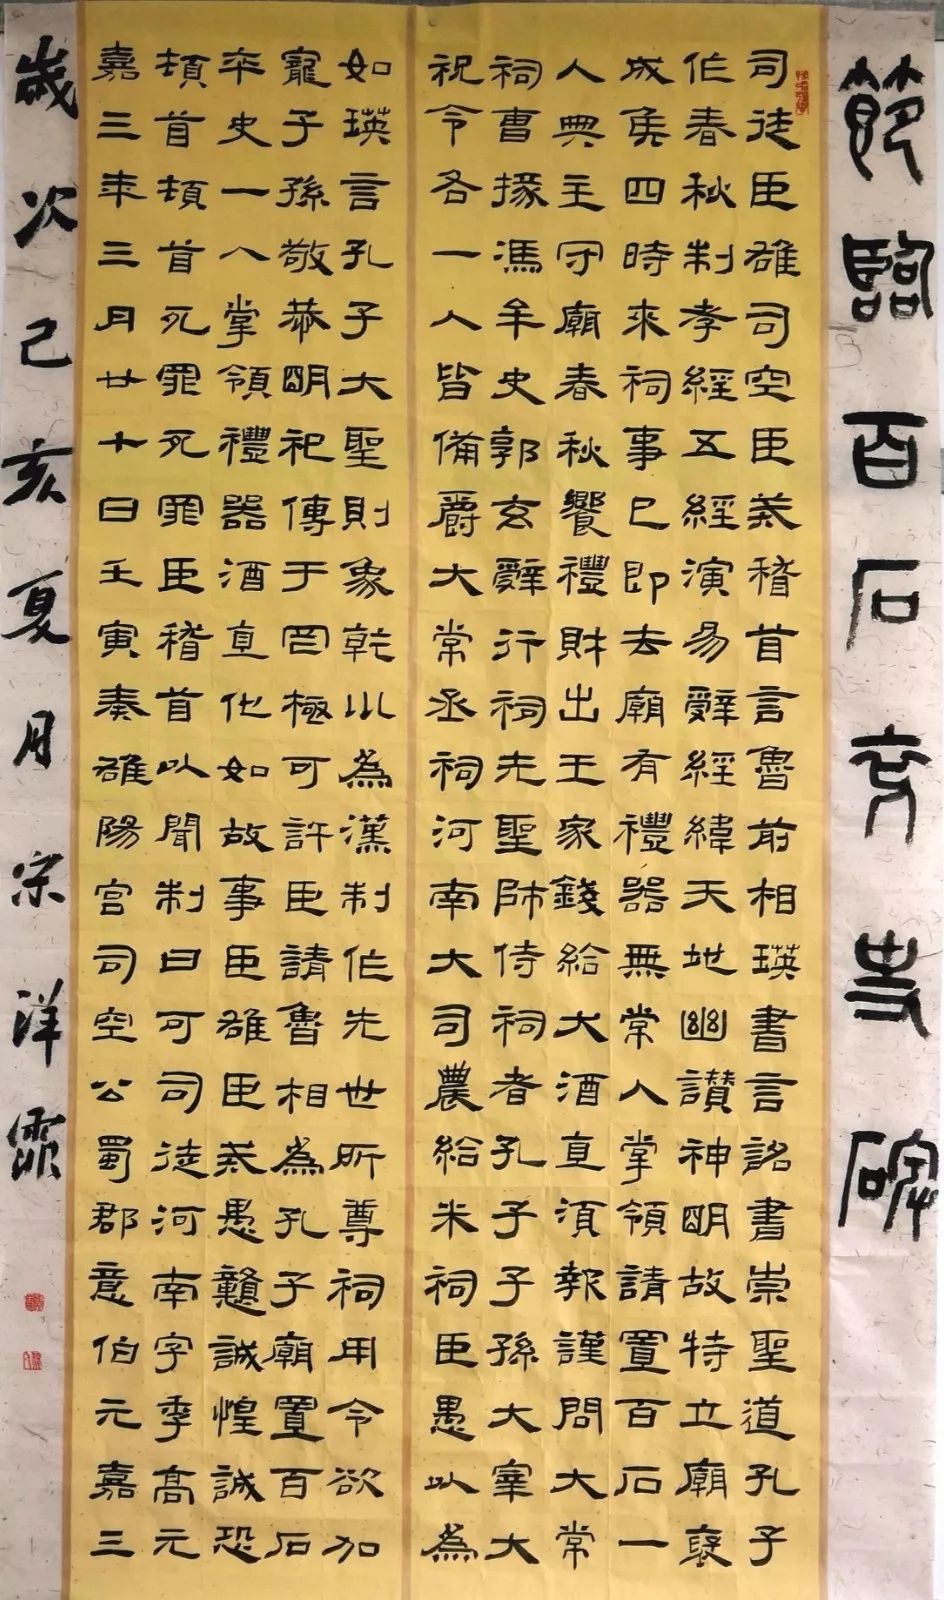 節臨百石卒史碑
司徒臣雄司空臣戒稽首言魯前相瑛書言詔書崇聖道孔子
作春秋制孝經五經演易辭經緯天地幽讃神明故特立廟褒
成侯四時來祠事已即去廟有禮器無常人掌領請置百石一
人典主守廟春秋饗禮財出王家錢給大酒直須報謹問大常
祠曹掾馮牟史郭玄辭行祠先聖師侍祠者孔子子孫大宰大
祝令各一人皆備爵大常丞祠河南大司農給米祠臣愚以為
如瑛言孔子大聖則象乾巛為漢制作先世所尊祠用令欲加
寵子孫敬恭明祀傳于罔極可許臣請魯相為孔子廟置百石
卒史一人掌領禮器酒直他如故事臣雄臣戒愚戇誠惶誠恐
頓首頓首死罪死罪臣稽首以聞制曰可司徒河南字季高元
嘉三年三月廿七日壬寅奏雒陽宮司空公蜀郡意伯元嘉三
歲次己亥夏月宋洋